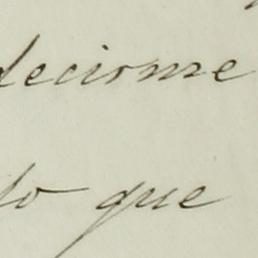 decirme
lo que